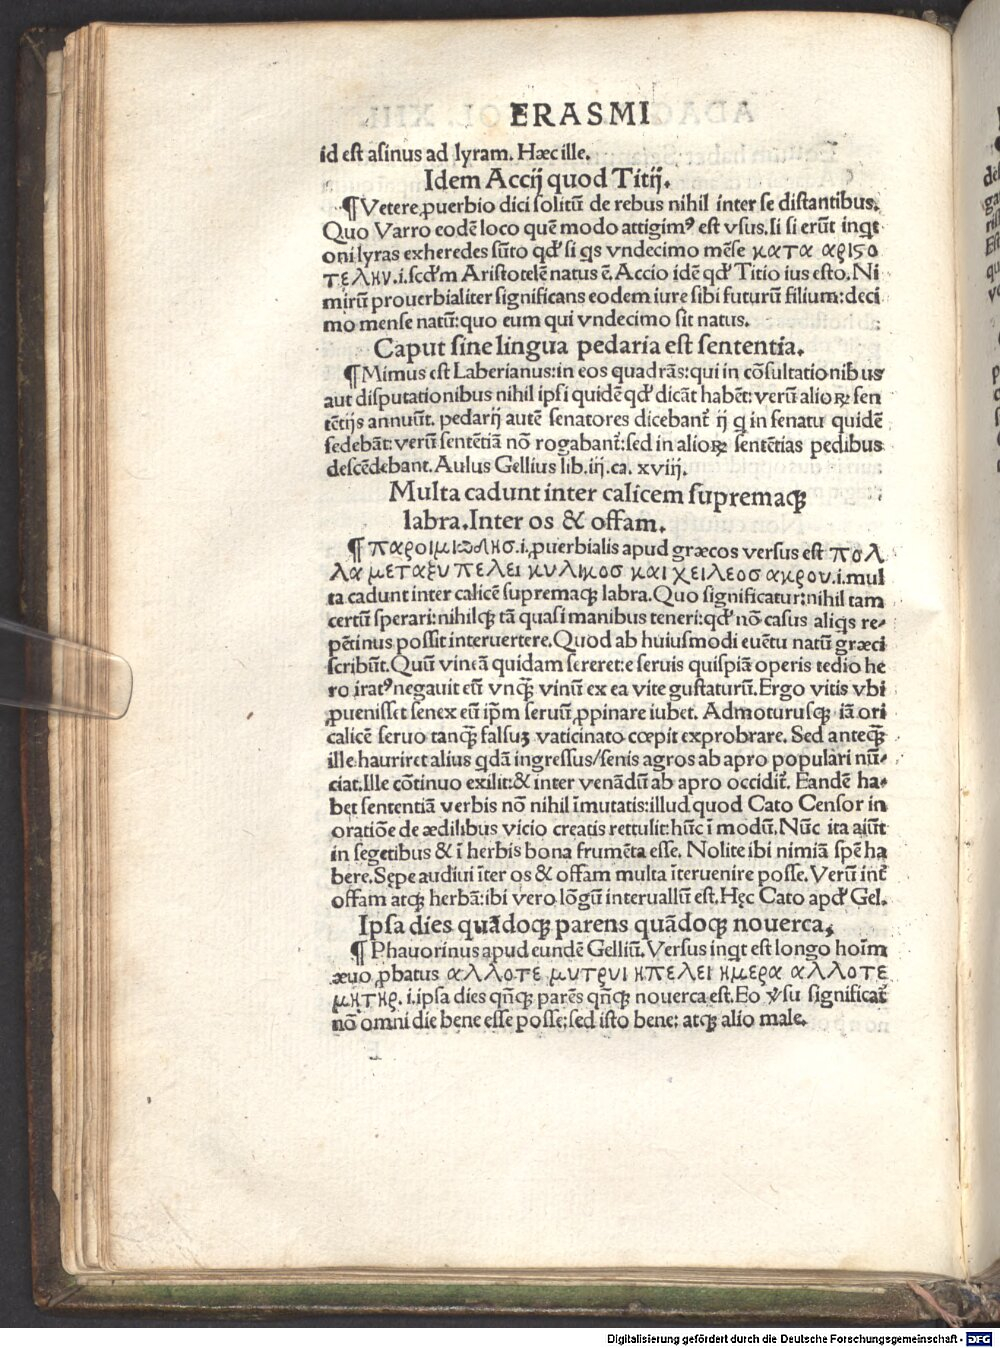 ERASMI
id est asinus ad lyram. Hæc ille.
Idem Accij quod Titij.
¶ Vetere ꝓuerbio dici solitũ de rebus nihil inter se distantibus.
Quo Varro eodẽ loco quẽ modo attigimꝰ est vsus. Ii si erũt inqͥt
oni lyras exheredes sũto qđ si qͥs vndecimo mẽse κατα αριϛο
τελην .i. scđm Aristotelẽ natus ẽ. Accio idẽ qđ Titio ius esto. Ni
mirũ prouerbialiter significans eodem iure sibi futurũ filium: deci
mo mense natũ: quo eum qui vndecimo sit natus.
Caput sine lingua pedaria est sententia.
¶ Mimus est Laberianus: in eos quadrãs: qui in cõsultationibus
aut disputationibus nihil ipsi quidẽ qđ dicãt habẽt: verũ alioꝝ sen
tẽtijs annuũt. pedarij autẽ senatores dicebant᷑ ij q in senatu quidẽ
sedebãt: verũ sentẽtiã nõ rogabant᷑: sed in alioꝝ sentẽtias pedibus
descẽdebant. Aulus Gellius lib. iij. ca. xviij.
Multa cadunt inter calicem supremaqꝫ
labra. Inter os & offam.
¶ παροιμιωδησ .i. ꝓuerbialis apud græcos versus est πολ
λα μεταξυ πελει κυλικοσ και χειλεοσ ακρου .i. mul
ta cadunt inter calicẽ supremaqꝫ labra. Quo significatur: nihil tam
certũ sperari: nihilqꝫ tã quasi manibus teneri: qđ nõ casus aliqͥs re⸗
pẽtinus possit interuertere. Quod ab huiusmodi euẽtu natũ græci
scribũt. Quũ vineã quidam sereret: e seruis quispiã operis tedio he
ro iratꝰ negauit eũ vnqꝫ̃ vinũ ex ea vite gustaturũ. Ergo vitis vbi
ꝓuenisset senex eũ ip̃m seruũ ꝓpinare iubet. Admoturusqꝫ iã ori
calicẽ seruo tanqꝫ̃ falsuꝫ vaticinato cœpit exprobrare. Sed anteqꝫ̃
ille hauriret alius qͥdã ingressus/senis agros ab apro populari nũ⸗
ciat. Ille cõtinuo exilit: & inter venãdũ ab apro occidit᷑. Eandẽ ha⸗
bet sententiã verbis nõ nihil ĩmutatis: illud quod Cato Censor in
oratiõe de ædilibus vicio creatis rettulit: hũc ĩ modũ. Nũc ita aiũt
in segetibus & ĩ herbis bona frumẽta esse. Nolite ibi nimiã spẽ ha
bere. Sępe audiui ĩter os & offam multa ĩteruenire posse. Verũ int᷑
offam atqꝫ herbã: ibi vero lõgũ interuallũ est. Hęc Cato apđ Gel.
Ipsa dies quãdoqꝫ parens quãdoqꝫ nouerca.
¶ Phauorinus apud eundẽ Gelliũ. Versus inqͥt est longo hoĩm
æuo ꝓbatus αλλοτε μυτρυι ηπελει ημερα αλλοτε
μητηρ. i. ipsa dies qñqꝫ parẽs qñqꝫ nouerca est. Eo v̾su significat᷑
nõ omni die bene esse posse: sed isto bene: atqꝫ alio male.
Digitalisierung gefördert durch die Deutsche Forschungsgemeinschaft - DFG